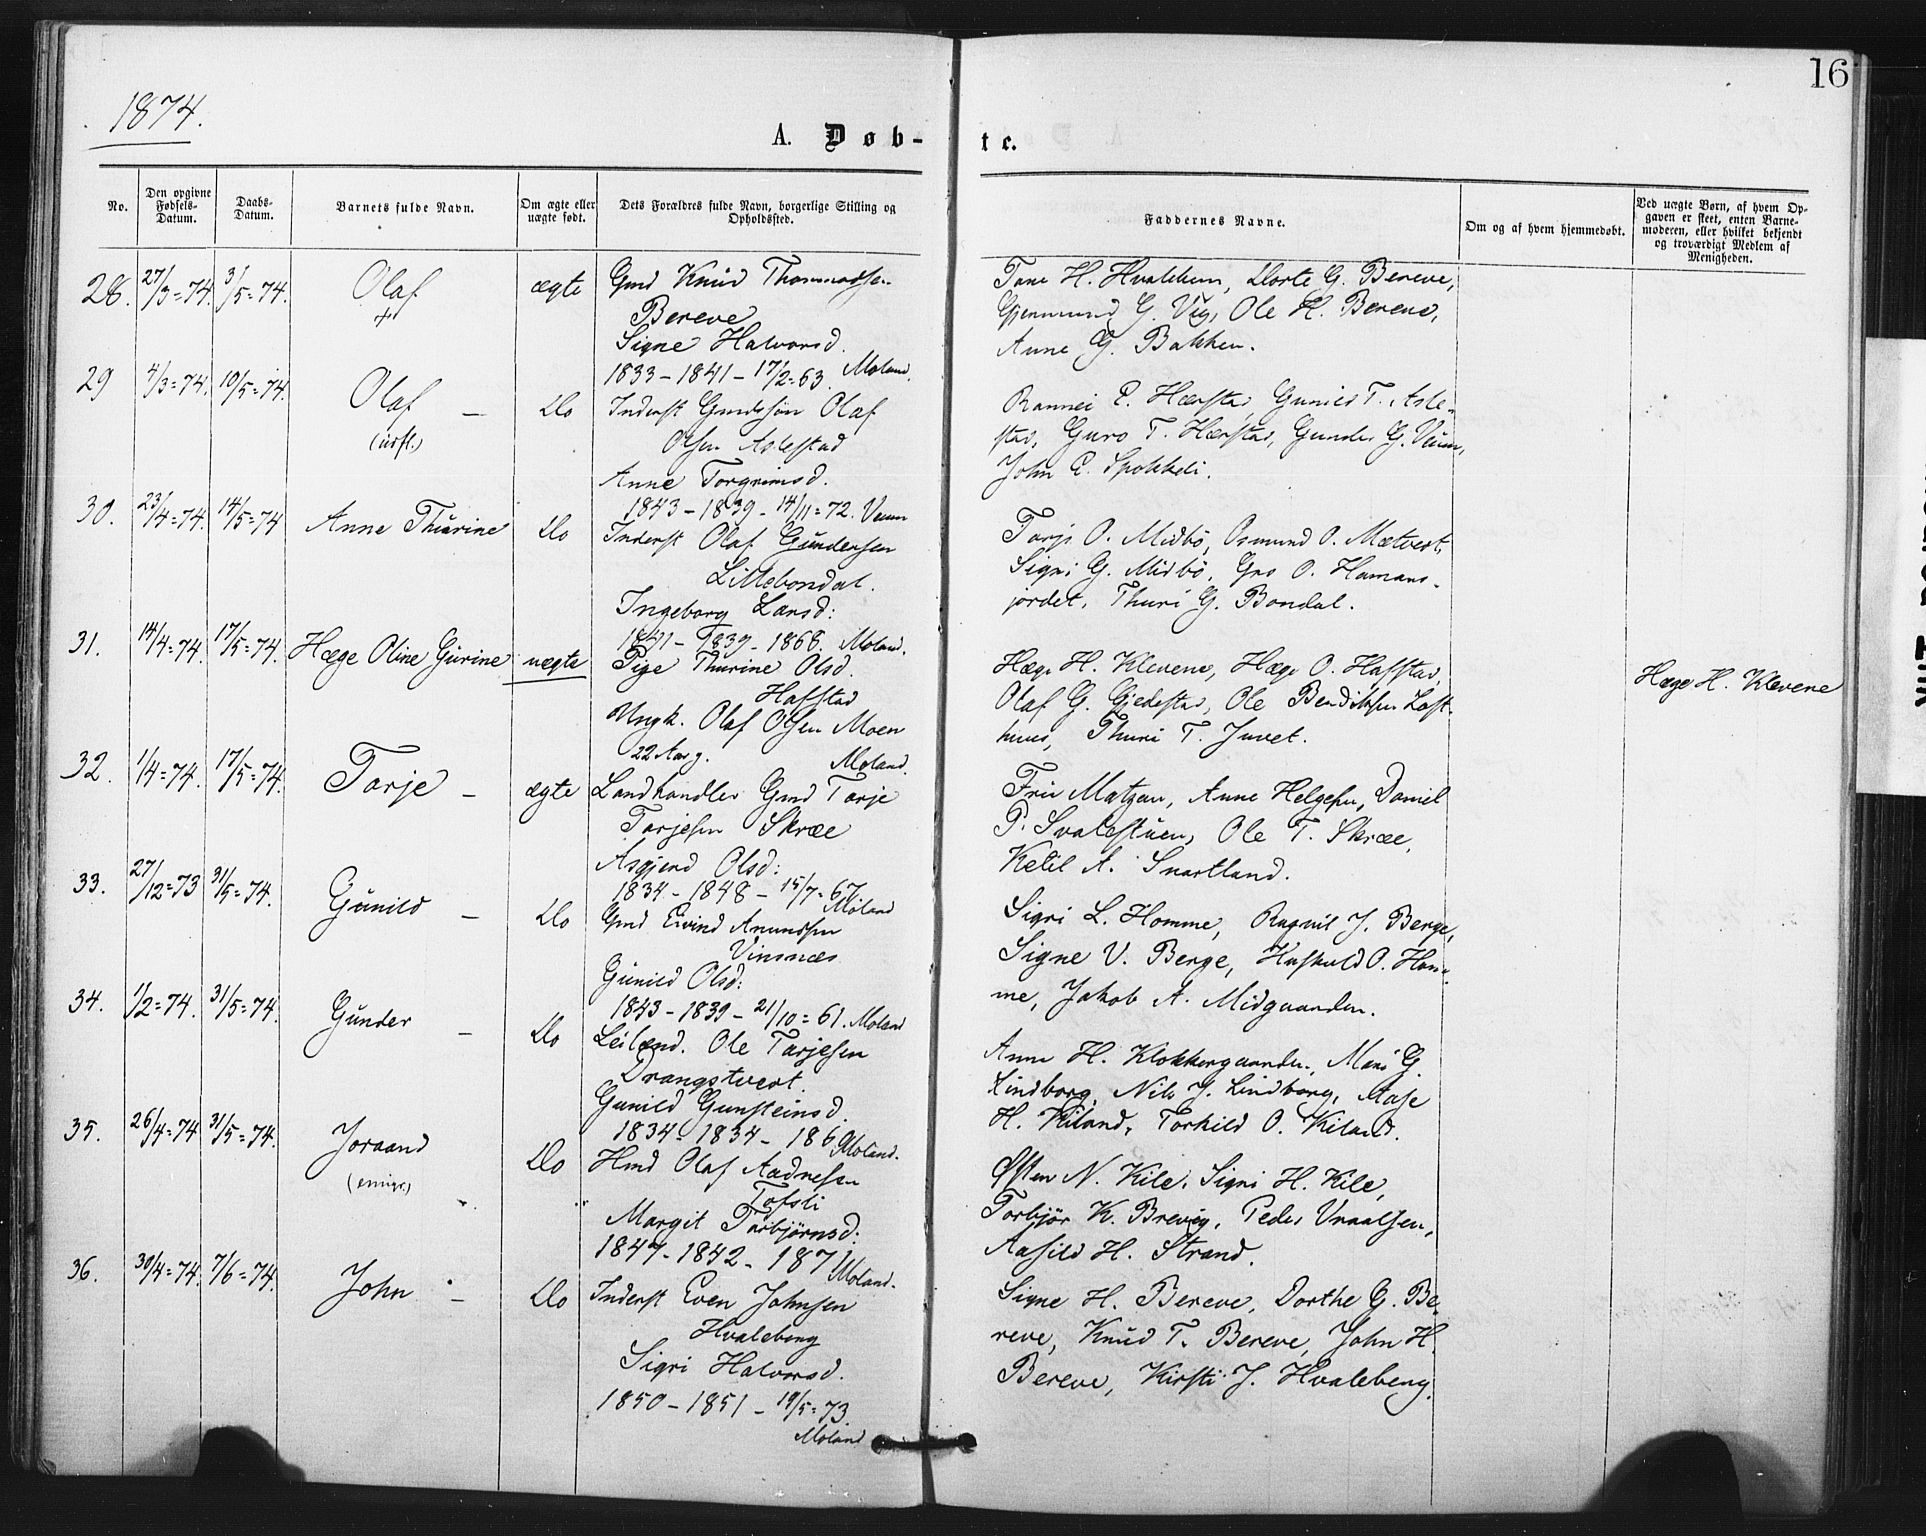 1874.
16
A. Døb-
te.
No.
Den opgivne
Fødsels-
Datum.
Daabs-
Datum.
Barnets fulde Navn.
Om ægte eller
uægte født.
Dets Forældres fulde Navn, borgerlige Stilling og
Opholdssted.
Faddernes Navne.
Om og af hvem hjemmedøbt.
Ved uægte Børn, af hvem Op-
gaven er skeet, enten Barne-
moderen, eller hvilket bekjendt
og troværdigt Medlem af
Menigheden.
28. 27/3=74. 3/5=74. Olaf + ægte
Gmd Knud Thommodsen
Bereve
Signe Halvorsd.
1833 - 1841 - 17/2=63. Moland.
H. Hvalebum, Dorte G. Bereve,
Gjermund G. Vig, Ole H. Bereve,
Anne G. Bakken.
29 4/3=74. 10/5=74. Olaf - Do
(udfl.)
Inderst Gmdssøn Olaf
Olsen Aslestad
Anne Torgrimsd.
1843 - 1839 - 14/11=72. Veum
Rannei E. Hærstad, Gunild T. Asle-
stad, Guro T. Hærstad, Gunder G. Veum,
John E. Spokkeli.
30. 23/4=74. 14/5=74 Anne Thurine Do
Inderst Olaf Gundersen
Littebondal.
Ingeborg Larsd:
1841 - 1839 - 1868. Moland.
Tarje O. Midbö, Osmund O. Mætvest,
Sigri G. Midbö, Gro O. Hamars-
jordet, Thuri G. Bondal.
31. 14/4=74. 17/5=74. Hæge Oline Gurine uægte
Pige Thurine Olsd.
Hafstad
Ungk. Olaf Olsen Moen
22 Aar g. Moland.
Hæge H. Klevene, Hæge O. Hafstad,
Olaf G. Gjedestad, Ole Bendiksen Loft-
huus, Thuri T. Juvet.
Hæge H. Klevene
32. 1/4=74. 17/5=74. Tarje - ægte
Landhandler Gmd Tarje
Tarjesen Skræe
Asgjerd Olsd:
1834 - 1848 - 15/7=67
Moland
Fru Matzau, Anne Helgesen, Daniel
P. Svalestuen, Ole T. Skræe,
Ketil A. Svartland.
33. 27/12=73 31/5=74. Gunild - Do
Gmd Eivind Anundsen
Vinsnæs
Gunild Olsd:
1843 - 1839 - 21/10=61. Moland
Sigri L. Homme, Ragnil J. Berge,
Signe V. Berge, Huskuld O. Hom-
me, Jakob A. Midgaarden.
34. 1/2=74. 31/5=74. Gunder - Do
Leilænd. Ole Tarjesen
Drangstvest.
Gunild Gunsteinsd.
1834 - 1834 - Moland.
Anne H. Klokkergaarden, Mari G.
Lindborg, Nils J. Lindborg, Aase
H. Kiland, Torkild O. Kiland.
35. 26/4=74 31/5=74. Joraand Do
(emigr.)
Hmd Olaf Aadnesen
Tofsli
Margit Tarbjørnsd:
1847 - 1842 - 1871 Moland.
Østen N. Kile, Sigri H. Kile,
Torbjör K. Brevig, Peder Vraalsen,
Aasild H. Strand.
36. 30/4=74. 7/6=74. John - Do
Inderst Even Johnsen
Hvaleberg
Sigri Halvorsd.
1850 - 1851 - 19/5=73.
Moland
Signe H. Bereve, Dorthe G. Be-
reve, Knud T. Bereve, John H.
Bereve, Kirsti J. Hvaleberg.